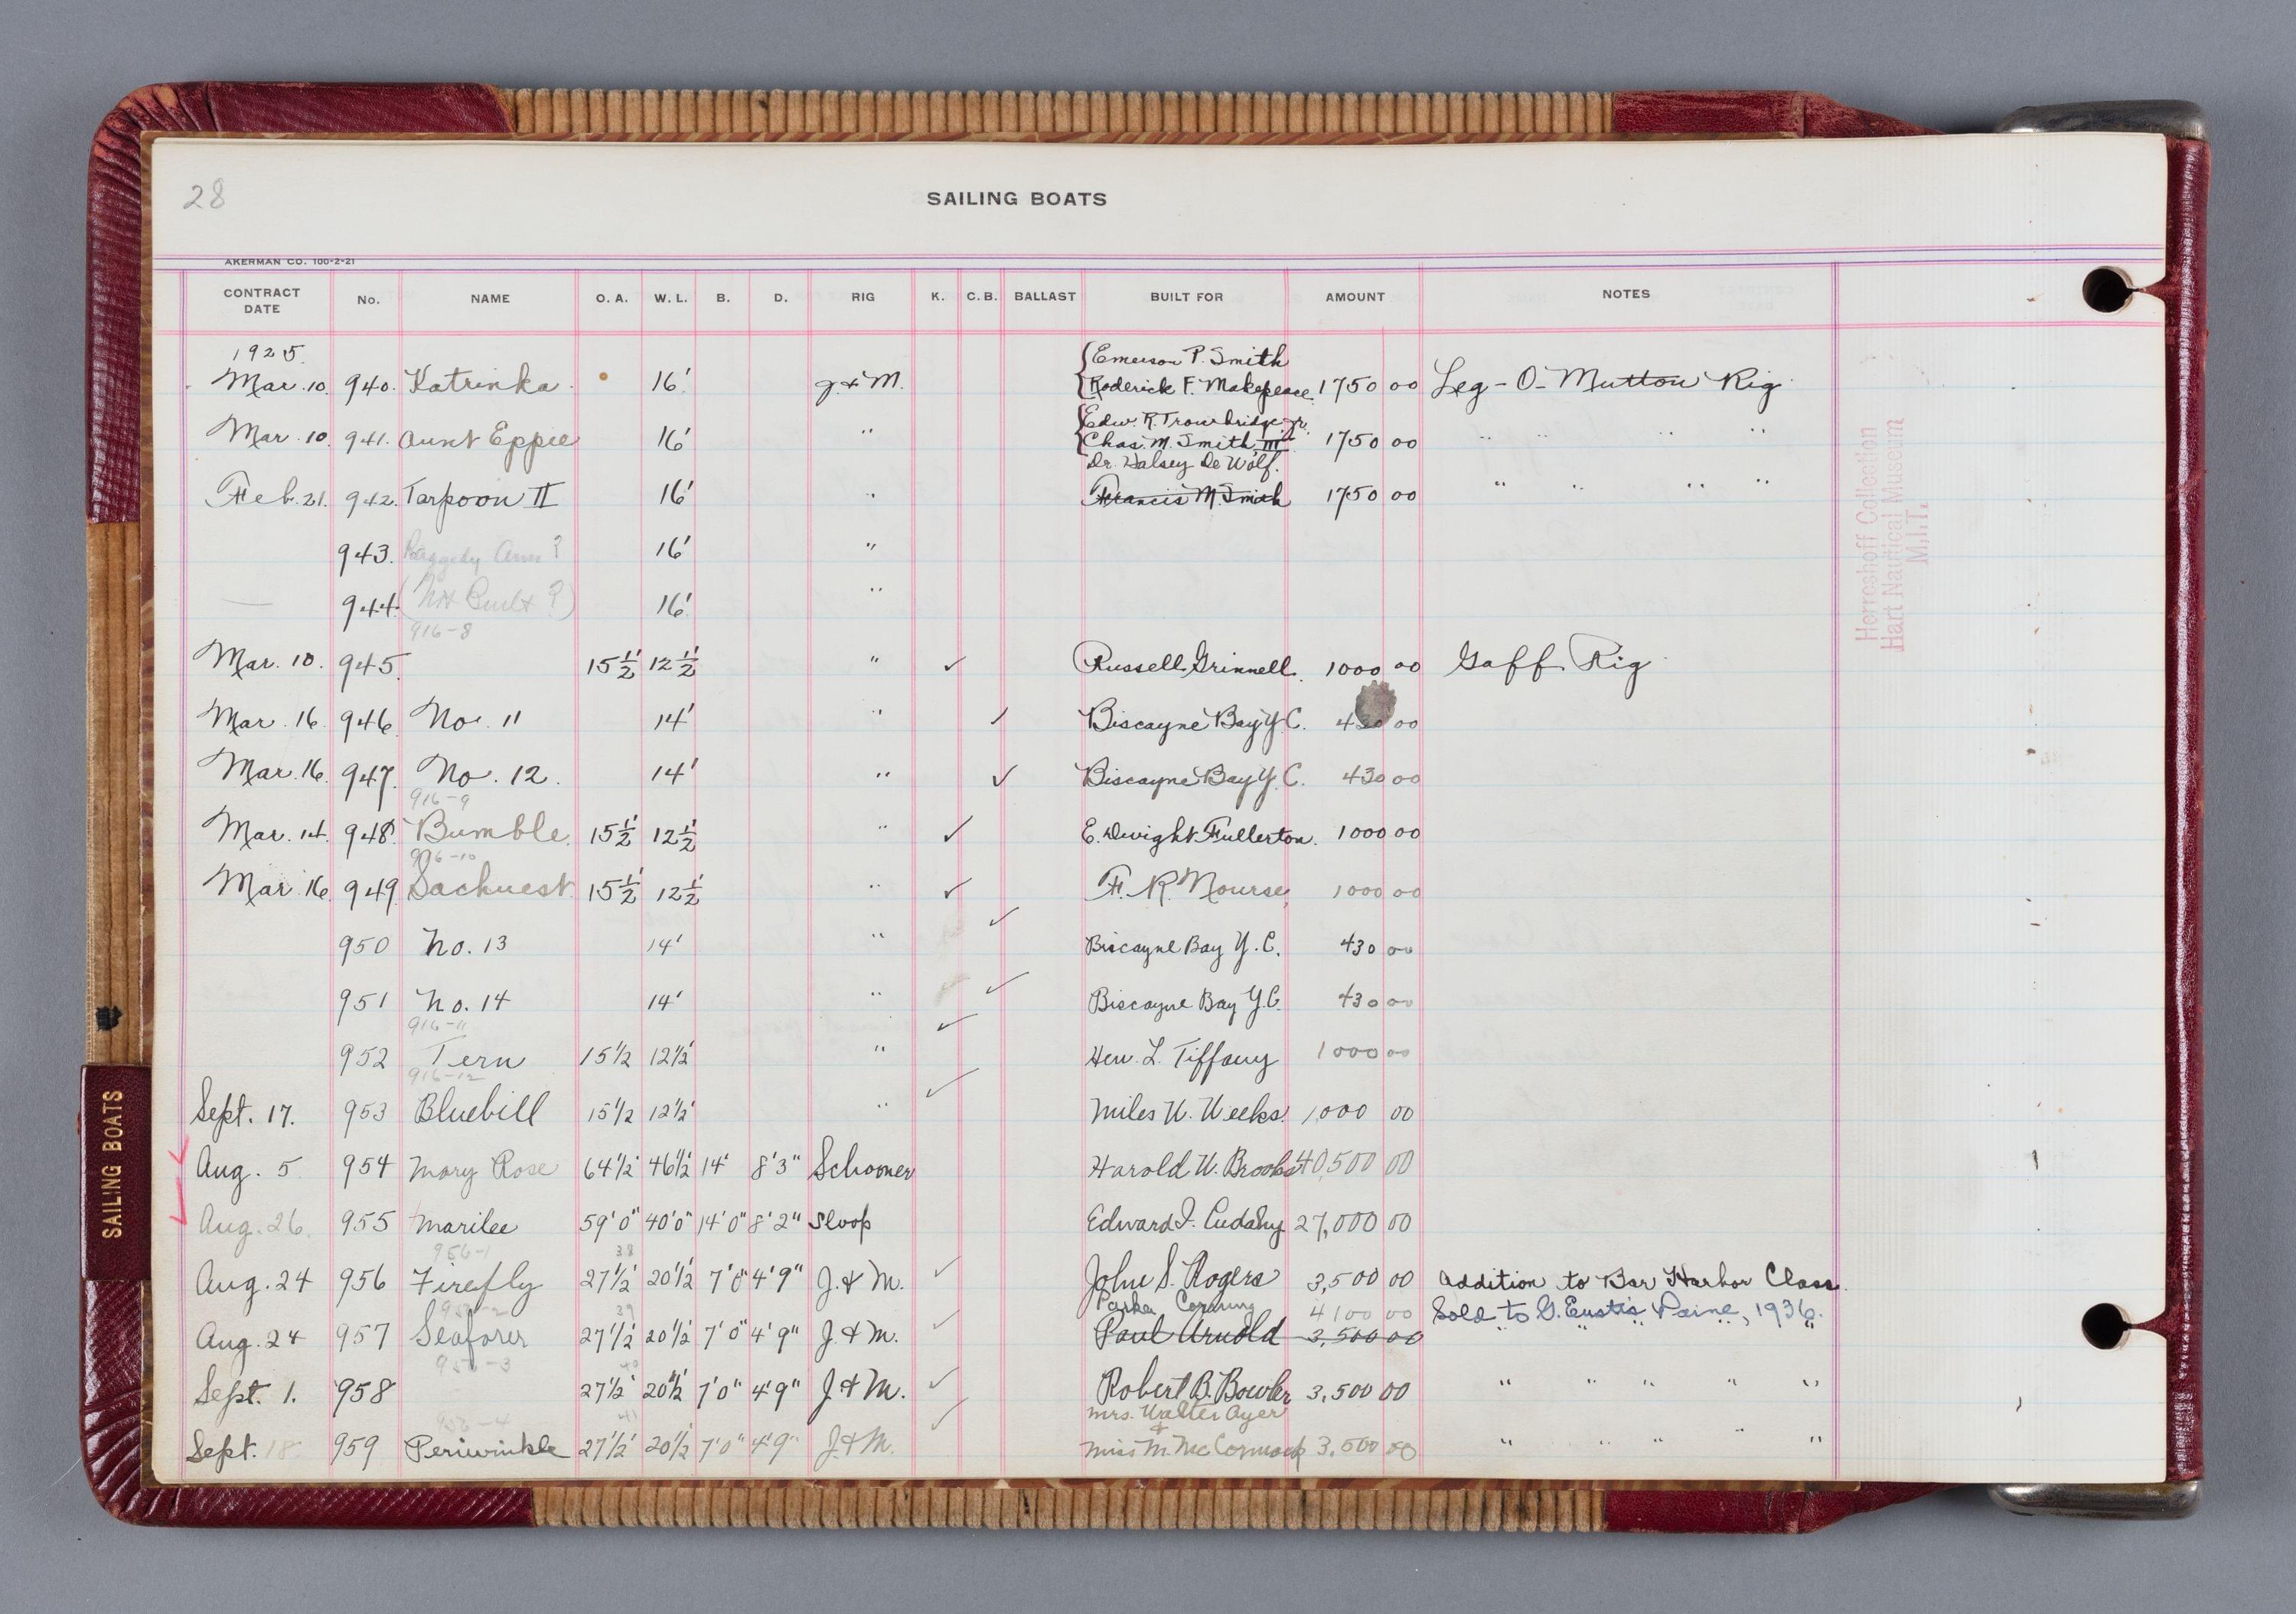 28
SAILING BOATS
AKERMAN CO. 100-2-21
CONTRACT DATE No. NAME O. A. W. L. B. D. RIG K. C. B. BALLAST BUILT FOR AMOUNT NOTES
1925. {Emerson P. Smith
Mar. 10. 940. Katrinka 16' J. & M. {Roderick F. Makepeace 1750 00 Leg-O-Mutton Rig
{Edw. R. Trowbridge, Jr.
Mar. 10. 941. Aunt Eppie 16' " {Chas. M. Smith III 1750 00 " " " "
Dr. Halsey De Wolf.
Feb. 21. 942. Tarpoon II 16' " Francis M. Smith 1750 00 " " " "
943. Raggedy Ann? 16' "
— 944. (Not Built?) 16' "
916-8
Mar. 10. 945. 15½' 12½' " ✓ Russell Grinnell. 1000 00 Gaff Rig
Mar. 16. 946. No. 11 14' " ✓ Biscayne Bay Y. C. 430 00
Mar. 16. 947. No. 12. 14' " ✓ Biscayne Bay Y. C. 430 00
916-9
Mar. 14. 948. Bumble. 15½' 12½' " ✓ E. Dwight Fullerton. 1000 00
916-10
Mar 16. 949. Sachuest 15½' 12½' " ✓ F. R. Nourse, 1000 00
950 No. 13 14' " ✓ Biscayne Bay Y. C. 430 00
951 No. 14 14' " ✓ Biscayne Bay Y. C. 430 00
916-11
952 Tern 15½ 12½' " ✓ Hen. L. Tiffany 1000 00
916-12
Sept. 17. 953 Bluebill 15½ 12½' " ✓ Miles W. Weeks. 1000 00
Aug. 5 954 Mary Rose 64½' 46½' 14' 8'3" Schooner Harold W. Brooks 40,500 00
Aug. 26. 955 Marilee 59'0" 40'0" 14'0" 8'2" Sloop Edward I. Cudahy 27,000 00
956-1 38
Aug. 24 956 Firefly 27½' 20½' 7'0" 4'9" J. & M. ✓ John S. Rogers 3,500 00 Addition to Bar Harbor Class.
956-2 39 Parker Corning 4100 00 Sold to G. Eustis Paine, 1936.
Aug. 24 957 Seafarer 27½' 20½' 7'0" 4'9" J. & M. ✓ Paul Arnold 3,500 00 " " " "
956-3 40
Sept. 1. 958 27½' 20½' 7'0" 4'9" J. & M. ✓ Robert B. Bowler 3,500 00 " " " " "
956-4 41 Mrs. Walter Ayer
&
Sept. 18 959 Periwinkle 27½' 20½' 7'0" 4'9" J. & M. ✓ Miss M. McCormack 3,500 00 " " " " "
Herreshoff Collection
Hart Nautical Museum
M.I.T.
SAILING BOATS